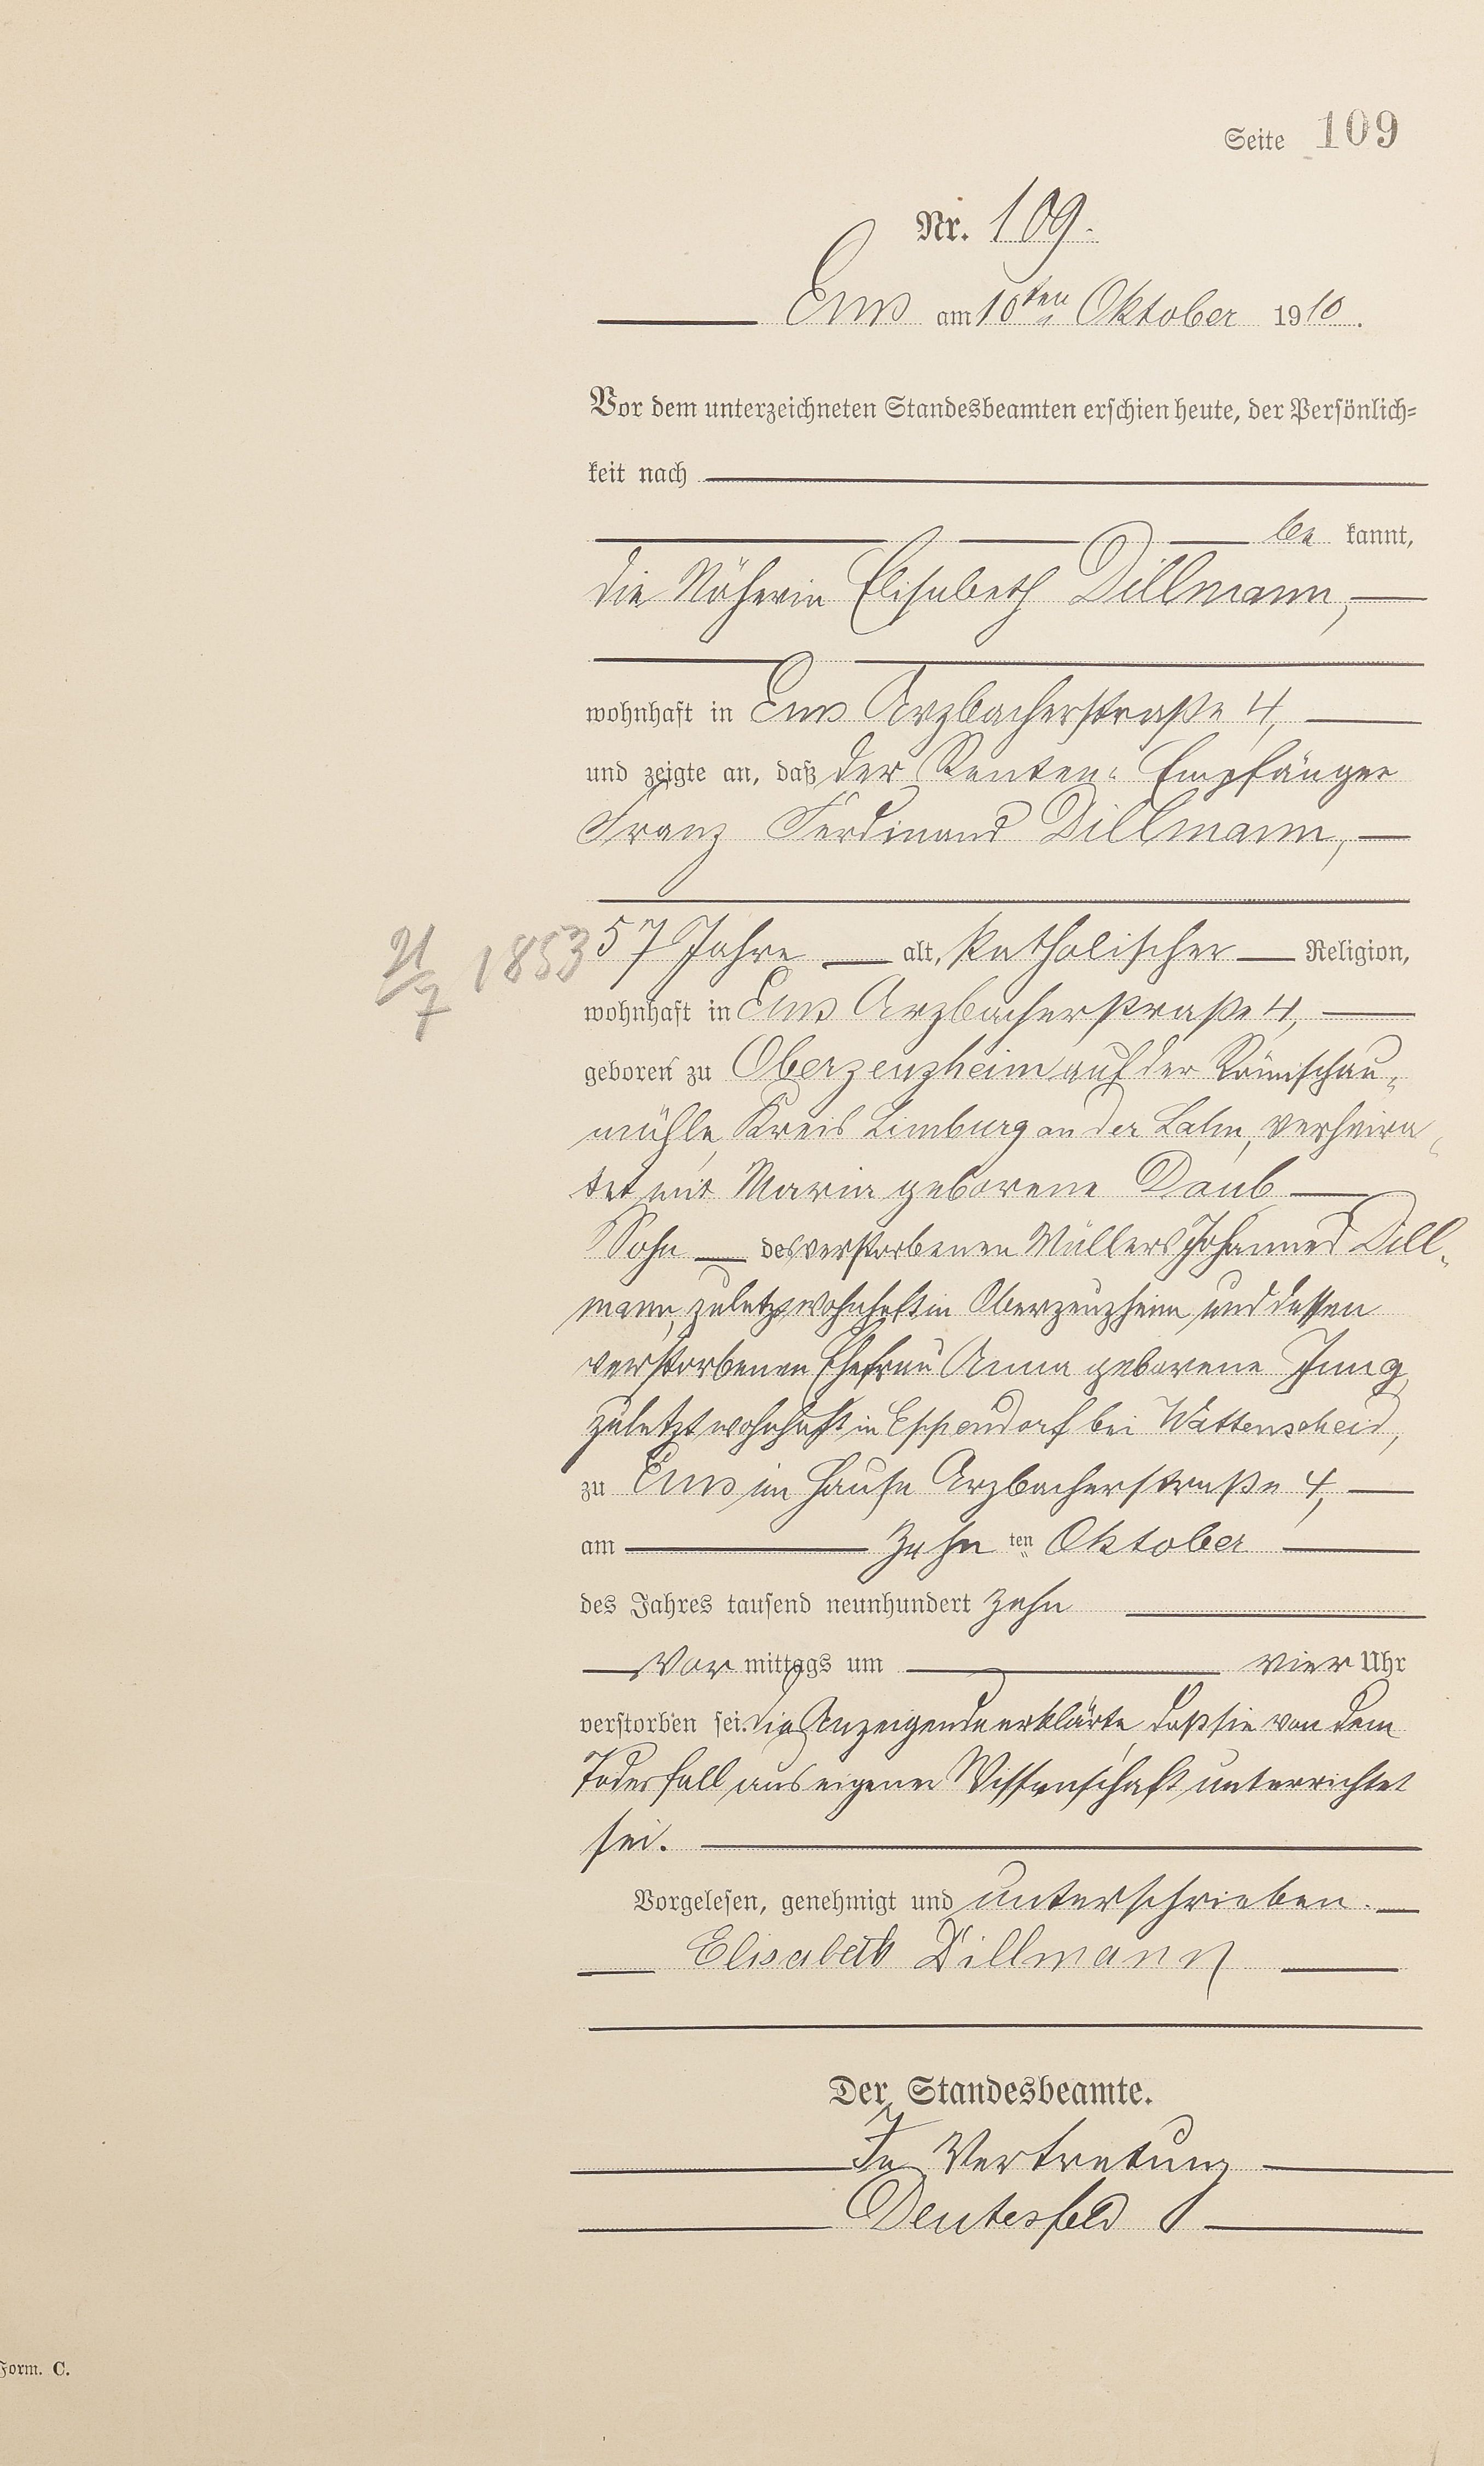 Seite 109
Nr. 109.
Ems am 10ten Oktober 1910.
Vor dem unterzeichneten Standesbeamten erschien heute, der Persönlich=
keit nach
be kannt,
die Näherin Elisabeth Dillmann,
wohnhaft in Ems Arzbacherstraße 4,
und zeigte an, daß der Renten-Empfänger
Franz Ferdinand Dillmann,
21/7 1853 57 Jahre alt, katholischer Religion,
wohnhaft in Ems Arzbacherstraße 4,
geboren zu Oberzeuzheim auf der
mühle, Kreis Limburg an der Lahn, verheira-
tet mit Maria geborene Daub
Sohn des verstorbenen Müllers Johannes Dill-
mann, zuletzt wohnhaft in Oberzeuzheim und dessen
verstorbenen Ehefrau Anna geborene Jung,
zuletzt wohnhaft in Eppendorf bei Wattenscheid,
zu Ems im Hause Arzbacherstraße 4,
am zehn ten Oktober
des Jahres tausend neunhundert zehn
Vor mittags um vier Uhr
verstorben sei. Die Anzeigende erklärte, daß sie von dem
Todesfall aus eigener Wissenschaft unterrichtet
sei.
Vorgelesen, genehmigt und unterschrieben.
Elisabeth Dillmann
Der Standesbeamte.
In Vertretung
Deutesfeld
Form. C.